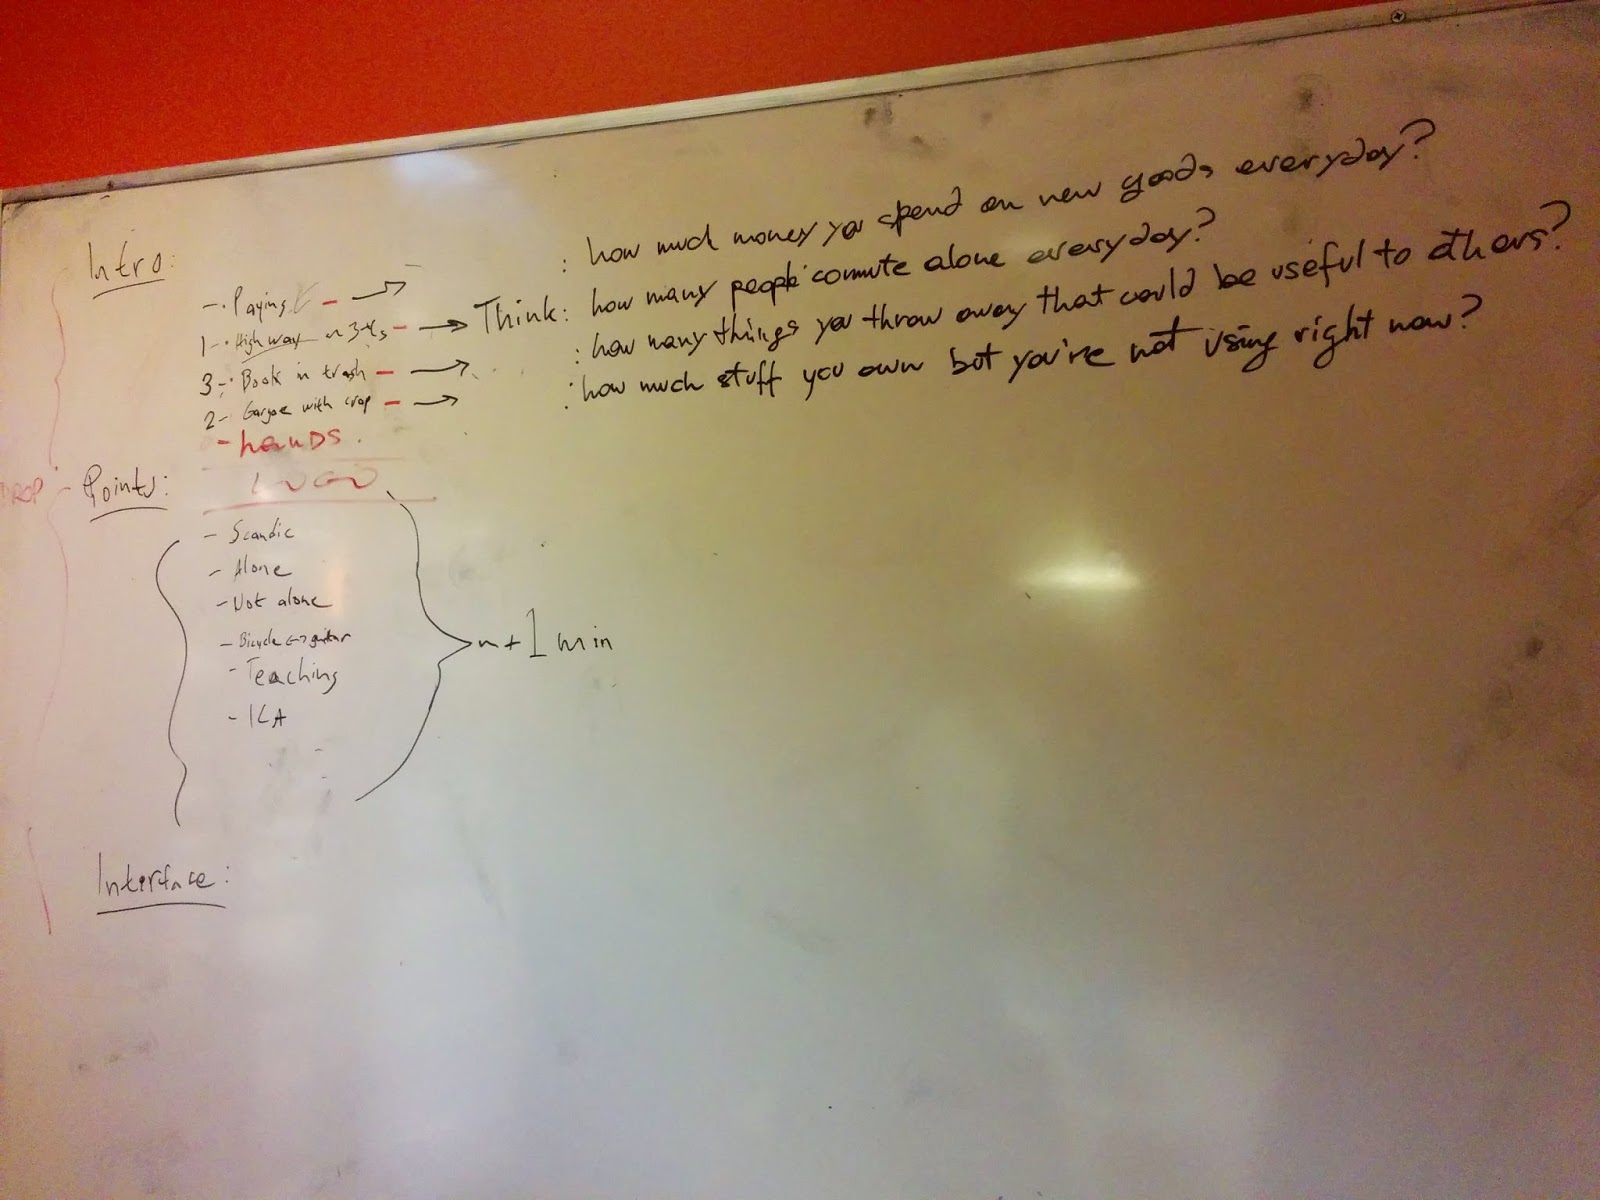 Intro:
- Paying -
: how much money you spend on new goods everyday?
1- Highway ~ 3-4s -
Think: how many people commute alone everyday?
3- Book in trash -
: how many things you throw away that could be useful to others?
2- Garage with crap -
: how much stuff you own but you're not using right now?
- hands.
DROP
Points:
- Scandic
- Alone
- Not alone
- Bicycle <-> guitar
- Teaching
- ICA
~ +1 min
Interface: